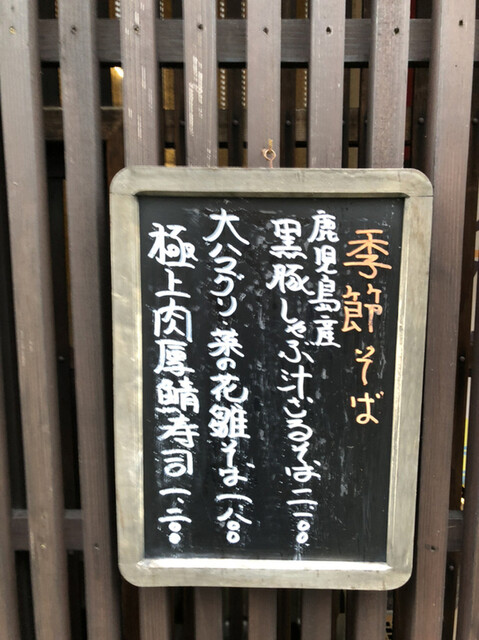 季節そば
鹿児島産
黒豚しゃぶ汁ざるそば 二一〇〇
大ハマグリ菜の花雛そば 一八〇〇
極上肉厚鯖寿司 一、二〇〇